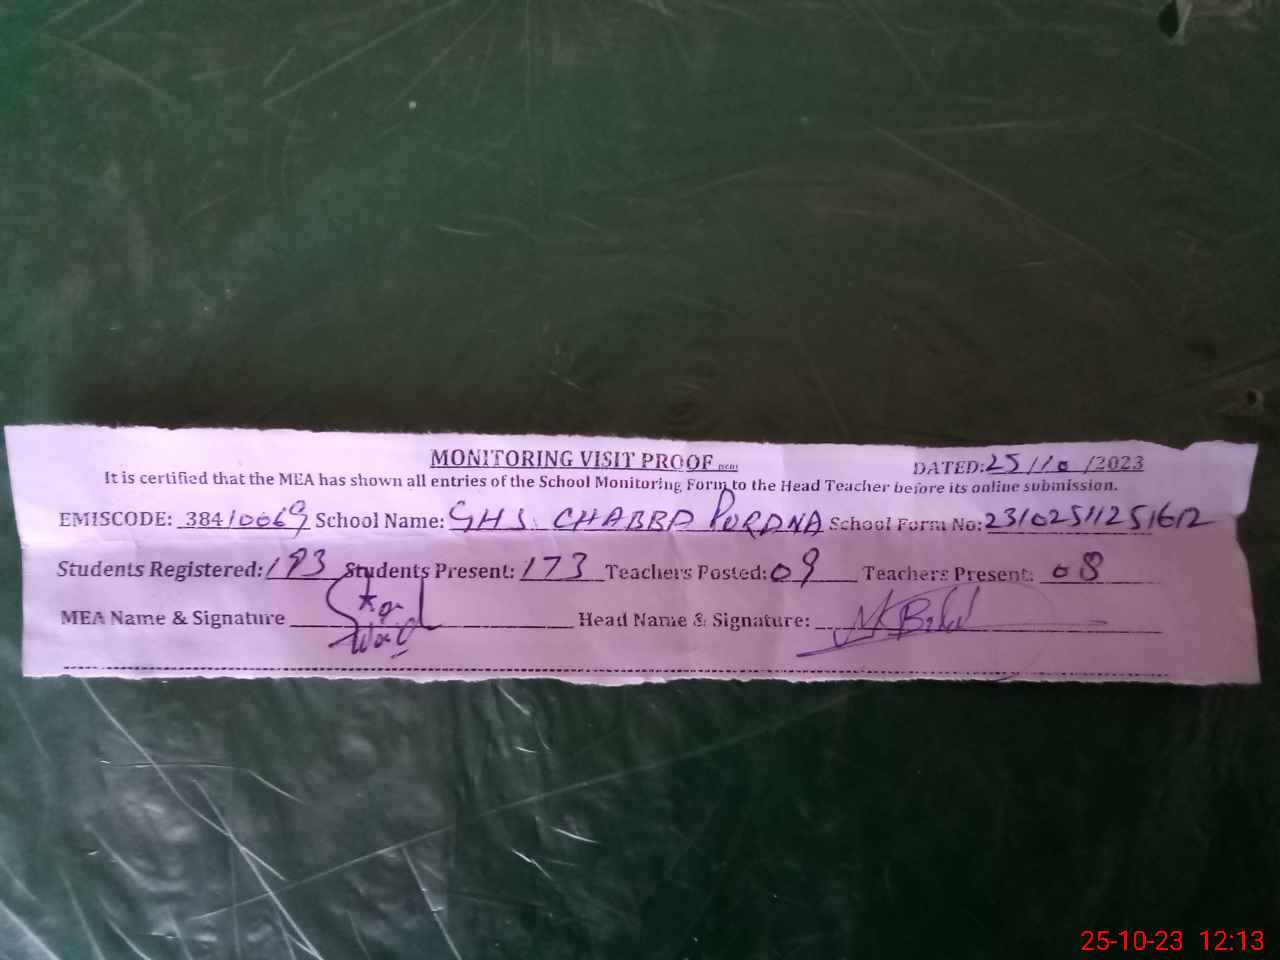 MONITORING VISIT PROOF DATED: 25/10/2023
It is certified that the MEA has shown all entries of the School Monitoring Form to the Head Teacher before its online submission.
EMISCODE: 38410069 School Name: GHS CHABBA PURANA School Form No: 23102511251612
Students Registered: 193 Students Present: 173 Teachers Posted: 09 Teachers Present: 08
MEA Name & Signature Head Name & Signature:
25-10-23 12:13